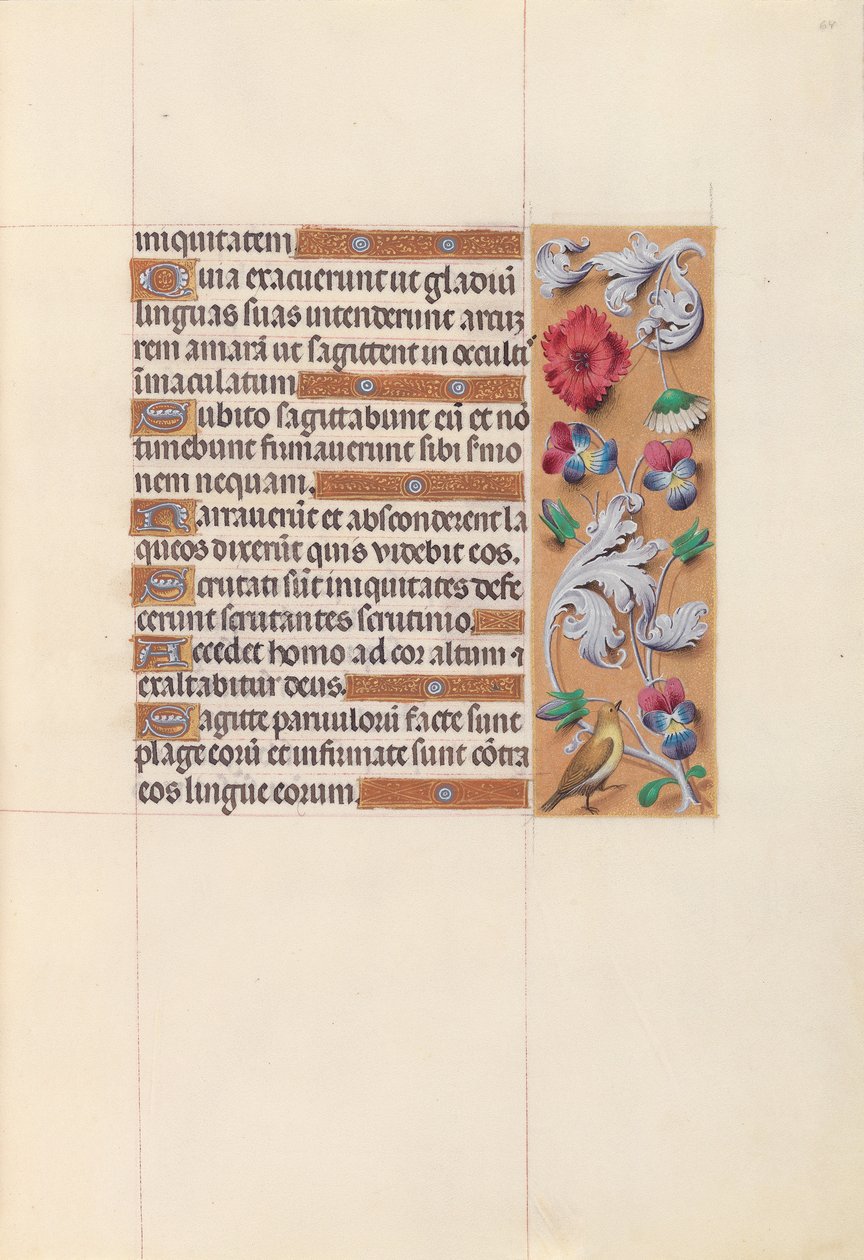 64
iniquitatem.
Quia exacuerunt ut gladiū
linguas suas intenderunt arcuʒ
rem amarā ut sagittent in occultꝭ
īmaculatum
Subito sagittabunt eū et nō
timebunt firmauerunt sibi smo
nem nequam.
Narrauerūt et absconderent la
queos dixerūt quis videbit eos.
Scrutati sūt iniquitates defe
cerunt scrutantes scrutinio.
Accedet homo ad cor altum ⁊
exaltabitur deus.
Sagitte paruulorū facte sunt
plage eorū et infirmate sunt cōtra
eos lingue eorum.